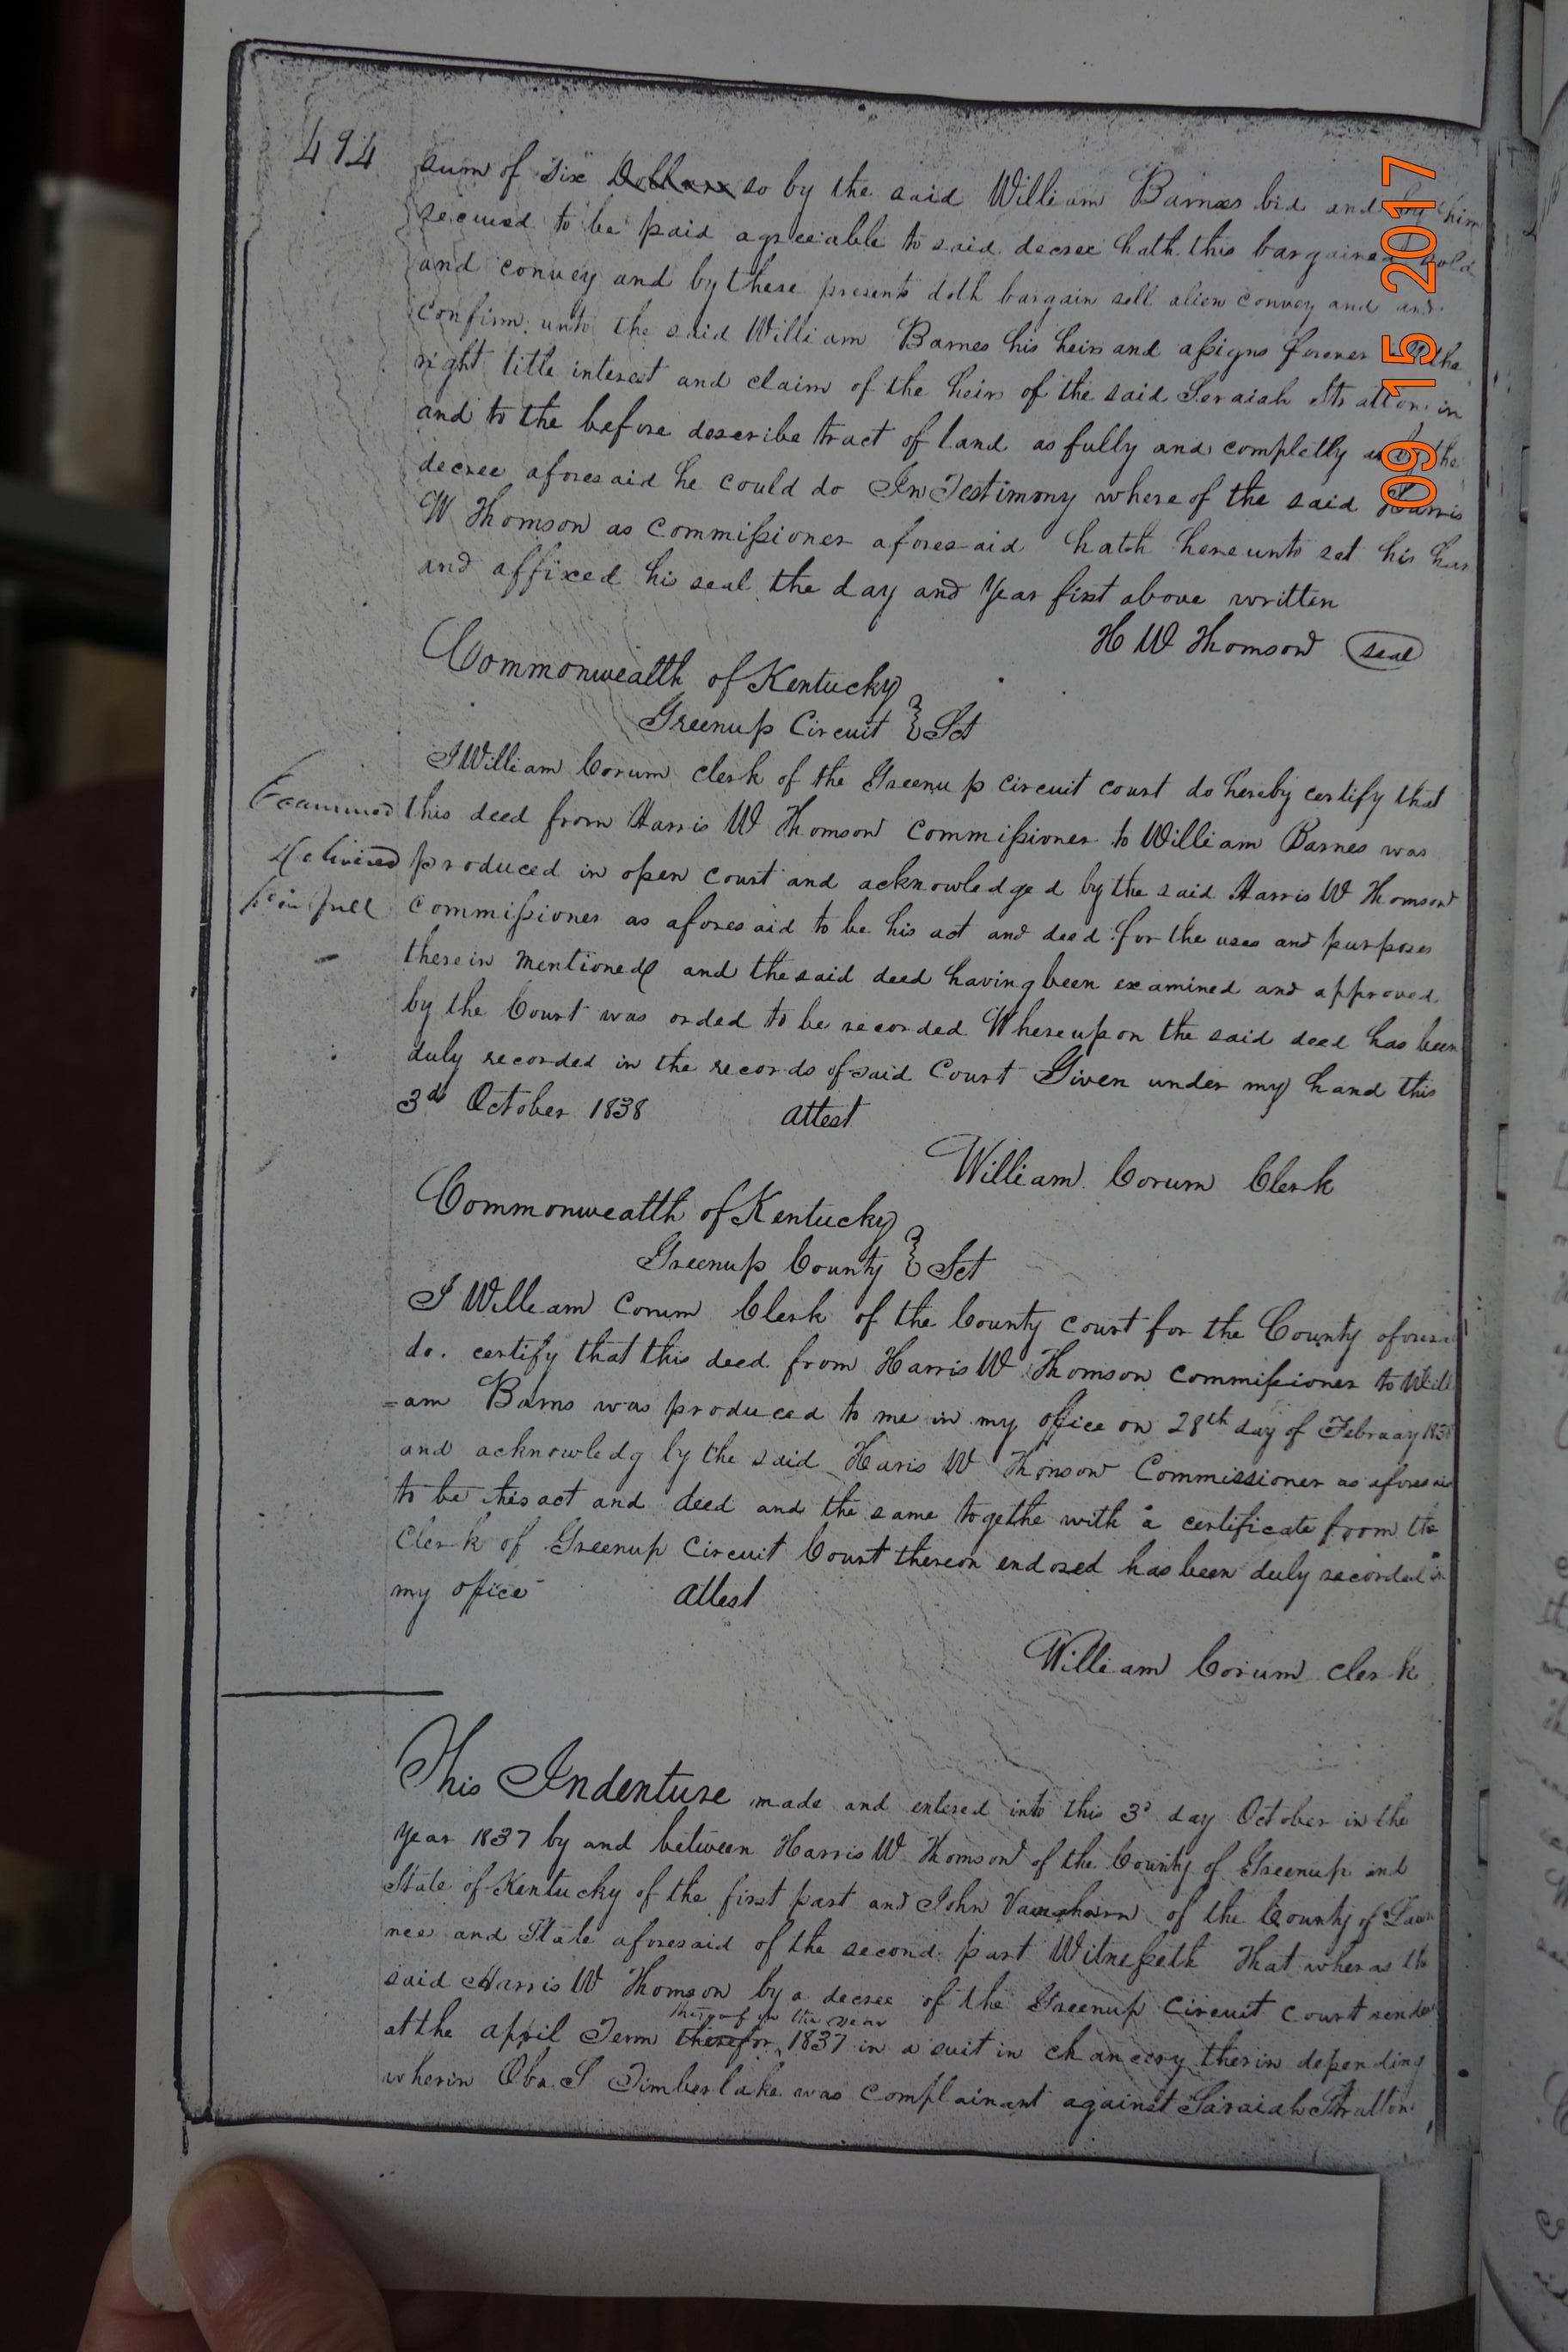 494
sum of Six Dollars so by the said William Barnes bid and by him
secured to be paid agreeable to said decree hath this bargained sold
and convey and by these presents doth bargain sell alien convey and and
Confirm unto the said William Barnes his heirs and assigns forever the
right title interest and claim of the heirs of the said Seraiah Stratton in
and to the before describe tract of land as fully and completly as by the
decree aforesaid he could do In Testimony whereof the said Harris
W Thomson as commissioner aforesaid hath hereunto set his han
and affixed his seal the day and Year first above written
H W Thomson seal
Commonwealth of Kentucky
Greenup Circuit } Sct
I William Corum clerk of the Greenup circuit court do hereby certify that
Examined this deed from Harris W Thomson commissioner to William Barnes was
delivered produced in open court and acknowledged by the said Harris W Thomson
in full commissioner as aforesaid to be his act and deed for the uses and purposes
therein mentioned and the said deed having been examined and approved
by the Court was orded to be recorded Whereupon the said deed has been
duly recorded in the records of said Court Given under my hand this
3d October 1838 attest
William Corum Clerk
Commonwealth of Kentucky
Greenup County } Sct
I William Corum Clerk of the County court for the County aforesa
do. certify that this deed from Harris W Thomson commissioner to Will
=am Barns was produced to me in my office on 28th day of Februay 1838
and acknowledg by the said Haris W Thomson Commissioner as aforesaid
to be his act and deed and the same togethe with a certificate from the
Clerk of Greenup Circuit Court thereon endosed has been duly recorded in
my office attest
William Corum clerk
This Indenture made and entered into this 3d day October in the
Year 1837 by and between Harris W Thomson of the County of Greenup and
State of Kentucky of the first part and John Vaughan of the County of Law
nce and State aforesaid of the second part Witnesseth That wheras the
said Harris W Thomson by a decree of the Greenup circuit court rende
in the year
at the april Term therefor 1837 in a suit in chancery therin depending
wherin Oba S Timberlake was complainant against Saraiah Stratton
09 15 2017